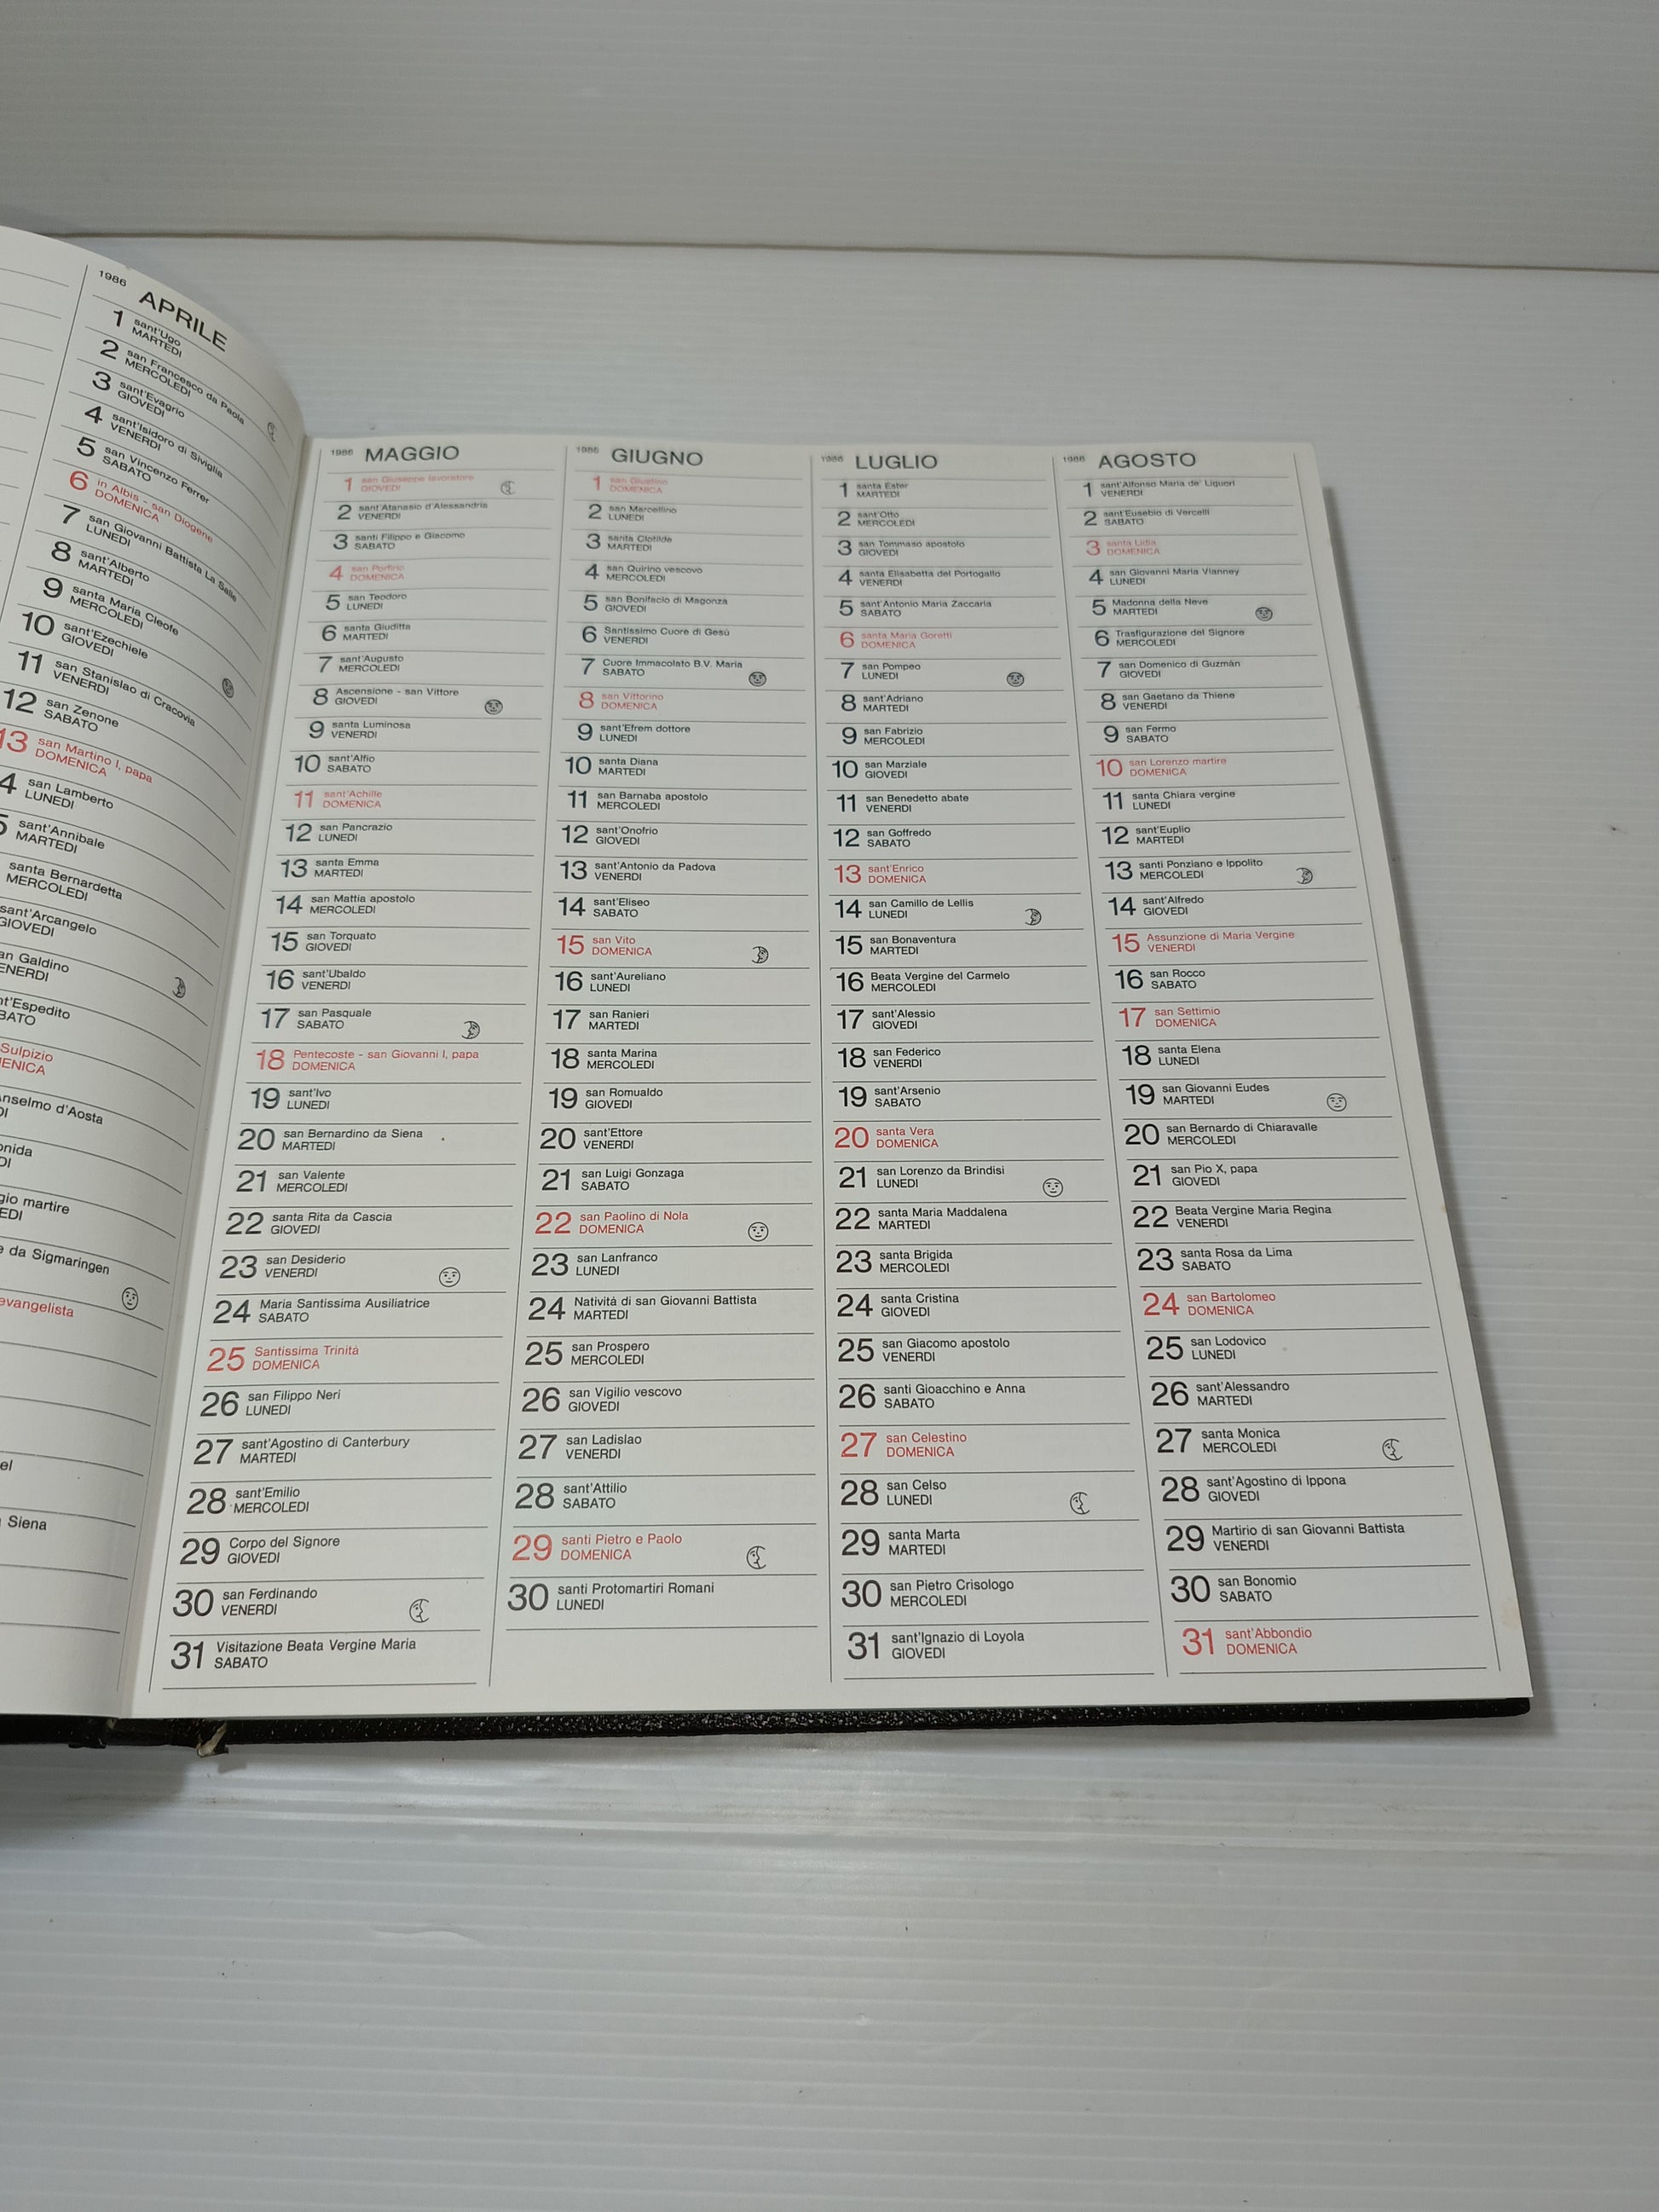 1986 APRILE
1 sant'Ugo
MARTEDI
2 san Francesco da Paola
MERCOLEDI
3 sant'Evagrio
GIOVEDI
4 sant'Isidoro di Siviglia
VENERDI
5 san Vincenzo Ferrer
SABATO
6 in Albis - san Diogene
DOMENICA
7 san Giovanni Battista La Salle
LUNEDI
8 sant'Alberto
MARTEDI
9 santa Maria Cleofe
MERCOLEDI
10 sant'Ezechiele
GIOVEDI
11 san Stanislao di Cracovia
VENERDI
12 san Zenone
SABATO
13 san Martino I, papa
DOMENICA
4 san Lamberto
LUNEDI
5 sant'Annibale
MARTEDI
santa Bernardetta
MERCOLEDI
sant'Arcangelo
GIOVEDI
an Galdino
ENERDI
nt'Espedito
BATO
Sulpizio
ENICA
nselmo d'Aosta
DI
onida
DI
gio martire
EDI
e da Sigmaringen
evangelista
el
Siena
1986 MAGGIO
1 san Giuseppe lavoratore
GIOVEDI
2 sant'Atanasio d'Alessandria
VENERDI
3 santi Filippo e Giacomo
SABATO
4 san Porfirio
DOMENICA
5 san Teodoro
LUNEDI
6 santa Giuditta
MARTEDI
7 sant'Augusto
MERCOLEDI
8 Ascensione - san Vittore
GIOVEDI
9 santa Luminosa
VENERDI
10 sant'Alfio
SABATO
11 sant'Achille
DOMENICA
12 san Pancrazio
LUNEDI
13 santa Emma
MARTEDI
14 san Mattia apostolo
MERCOLEDI
15 san Torquato
GIOVEDI
16 sant'Ubaldo
VENERDI
17 san Pasquale
SABATO
18 Pentecoste - san Giovanni I, papa
DOMENICA
19 sant'Ivo
LUNEDI
20 san Bernardino da Siena
MARTEDI
21 san Valente
MERCOLEDI
22 santa Rita da Cascia
GIOVEDI
23 san Desiderio
VENERDI
24 Maria Santissima Ausiliatrice
SABATO
25 Santissima Trinità
DOMENICA
26 san Filippo Neri
LUNEDI
27 sant'Agostino di Canterbury
MARTEDI
28 sant'Emilio
MERCOLEDI
29 Corpo del Signore
GIOVEDI
30 san Ferdinando
VENERDI
31 Visitazione Beata Vergine Maria
SABATO
1986 GIUGNO
1 san Giustino
DOMENICA
2 san Marcellino
LUNEDI
3 santa Clotilde
MARTEDI
4 san Quirino vescovo
MERCOLEDI
5 san Bonifacio di Magonza
GIOVEDI
6 Santissimo Cuore di Gesù
VENERDI
7 Cuore Immacolato B.V. Maria
SABATO
8 san Vittorino
DOMENICA
9 sant'Efrem dottore
LUNEDI
10 santa Diana
MARTEDI
11 san Barnaba apostolo
MERCOLEDI
12 sant'Onofrio
GIOVEDI
13 sant'Antonio da Padova
VENERDI
14 sant'Eliseo
SABATO
15 san Vito
DOMENICA
16 sant'Aureliano
LUNEDI
17 san Ranieri
MARTEDI
18 santa Marina
MERCOLEDI
19 san Romualdo
GIOVEDI
20 sant'Ettore
VENERDI
21 san Luigi Gonzaga
SABATO
22 san Paolino di Nola
DOMENICA
23 san Lanfranco
LUNEDI
24 Natività di san Giovanni Battista
MARTEDI
25 san Prospero
MERCOLEDI
26 san Vigilio vescovo
GIOVEDI
27 san Ladislao
VENERDI
28 sant'Attilio
SABATO
29 santi Pietro e Paolo
DOMENICA
30 santi Protomartiri Romani
LUNEDI
1986 LUGLIO
1 santa Ester
MARTEDI
2 sant'Otto
MERCOLEDI
3 san Tommaso apostolo
GIOVEDI
4 santa Elisabetta del Portogallo
VENERDI
5 sant'Antonio Maria Zaccaria
SABATO
6 santa Maria Goretti
DOMENICA
7 san Pompeo
LUNEDI
8 sant'Adriano
MARTEDI
9 san Fabrizio
MERCOLEDI
10 san Marziale
GIOVEDI
11 san Benedetto abate
VENERDI
12 san Goffredo
SABATO
13 sant'Enrico
DOMENICA
14 san Camillo de Lellis
LUNEDI
15 san Bonaventura
MARTEDI
16 Beata Vergine del Carmelo
MERCOLEDI
17 sant'Alessio
GIOVEDI
18 san Federico
VENERDI
19 sant'Arsenio
SABATO
20 santa Vera
DOMENICA
21 san Lorenzo da Brindisi
LUNEDI
22 santa Maria Maddalena
MARTEDI
23 santa Brigida
MERCOLEDI
24 santa Cristina
GIOVEDI
25 san Giacomo apostolo
VENERDI
26 santi Gioacchino e Anna
SABATO
27 san Celestino
DOMENICA
28 san Celso
LUNEDI
29 santa Marta
MARTEDI
30 san Pietro Crisologo
MERCOLEDI
31 sant'Ignazio di Loyola
GIOVEDI
1986 AGOSTO
1 sant'Alfonso Maria de' Liguori
VENERDI
2 sant'Eusebio di Vercelli
SABATO
3 santa Lidia
DOMENICA
4 san Giovanni Maria Vianney
LUNEDI
5 Madonna della Neve
MARTEDI
6 Trasfigurazione del Signore
MERCOLEDI
7 san Domenico di Guzmán
GIOVEDI
8 san Gaetano da Thiene
VENERDI
9 san Fermo
SABATO
10 san Lorenzo martire
DOMENICA
11 santa Chiara vergine
LUNEDI
12 sant'Euplio
MARTEDI
13 santi Ponziano e Ippolito
MERCOLEDI
14 sant'Alfredo
GIOVEDI
15 Assunzione di Maria Vergine
VENERDI
16 san Rocco
SABATO
17 san Settimio
DOMENICA
18 santa Elena
LUNEDI
19 san Giovanni Eudes
MARTEDI
20 san Bernardo di Chiaravalle
MERCOLEDI
21 san Pio X, papa
GIOVEDI
22 Beata Vergine Maria Regina
VENERDI
23 santa Rosa da Lima
SABATO
24 san Bartolomeo
DOMENICA
25 san Lodovico
LUNEDI
26 sant'Alessandro
MARTEDI
27 santa Monica
MERCOLEDI
28 sant'Agostino di Ippona
GIOVEDI
29 Martirio di san Giovanni Battista
VENERDI
30 san Bonomio
SABATO
31 sant'Abbondio
DOMENICA